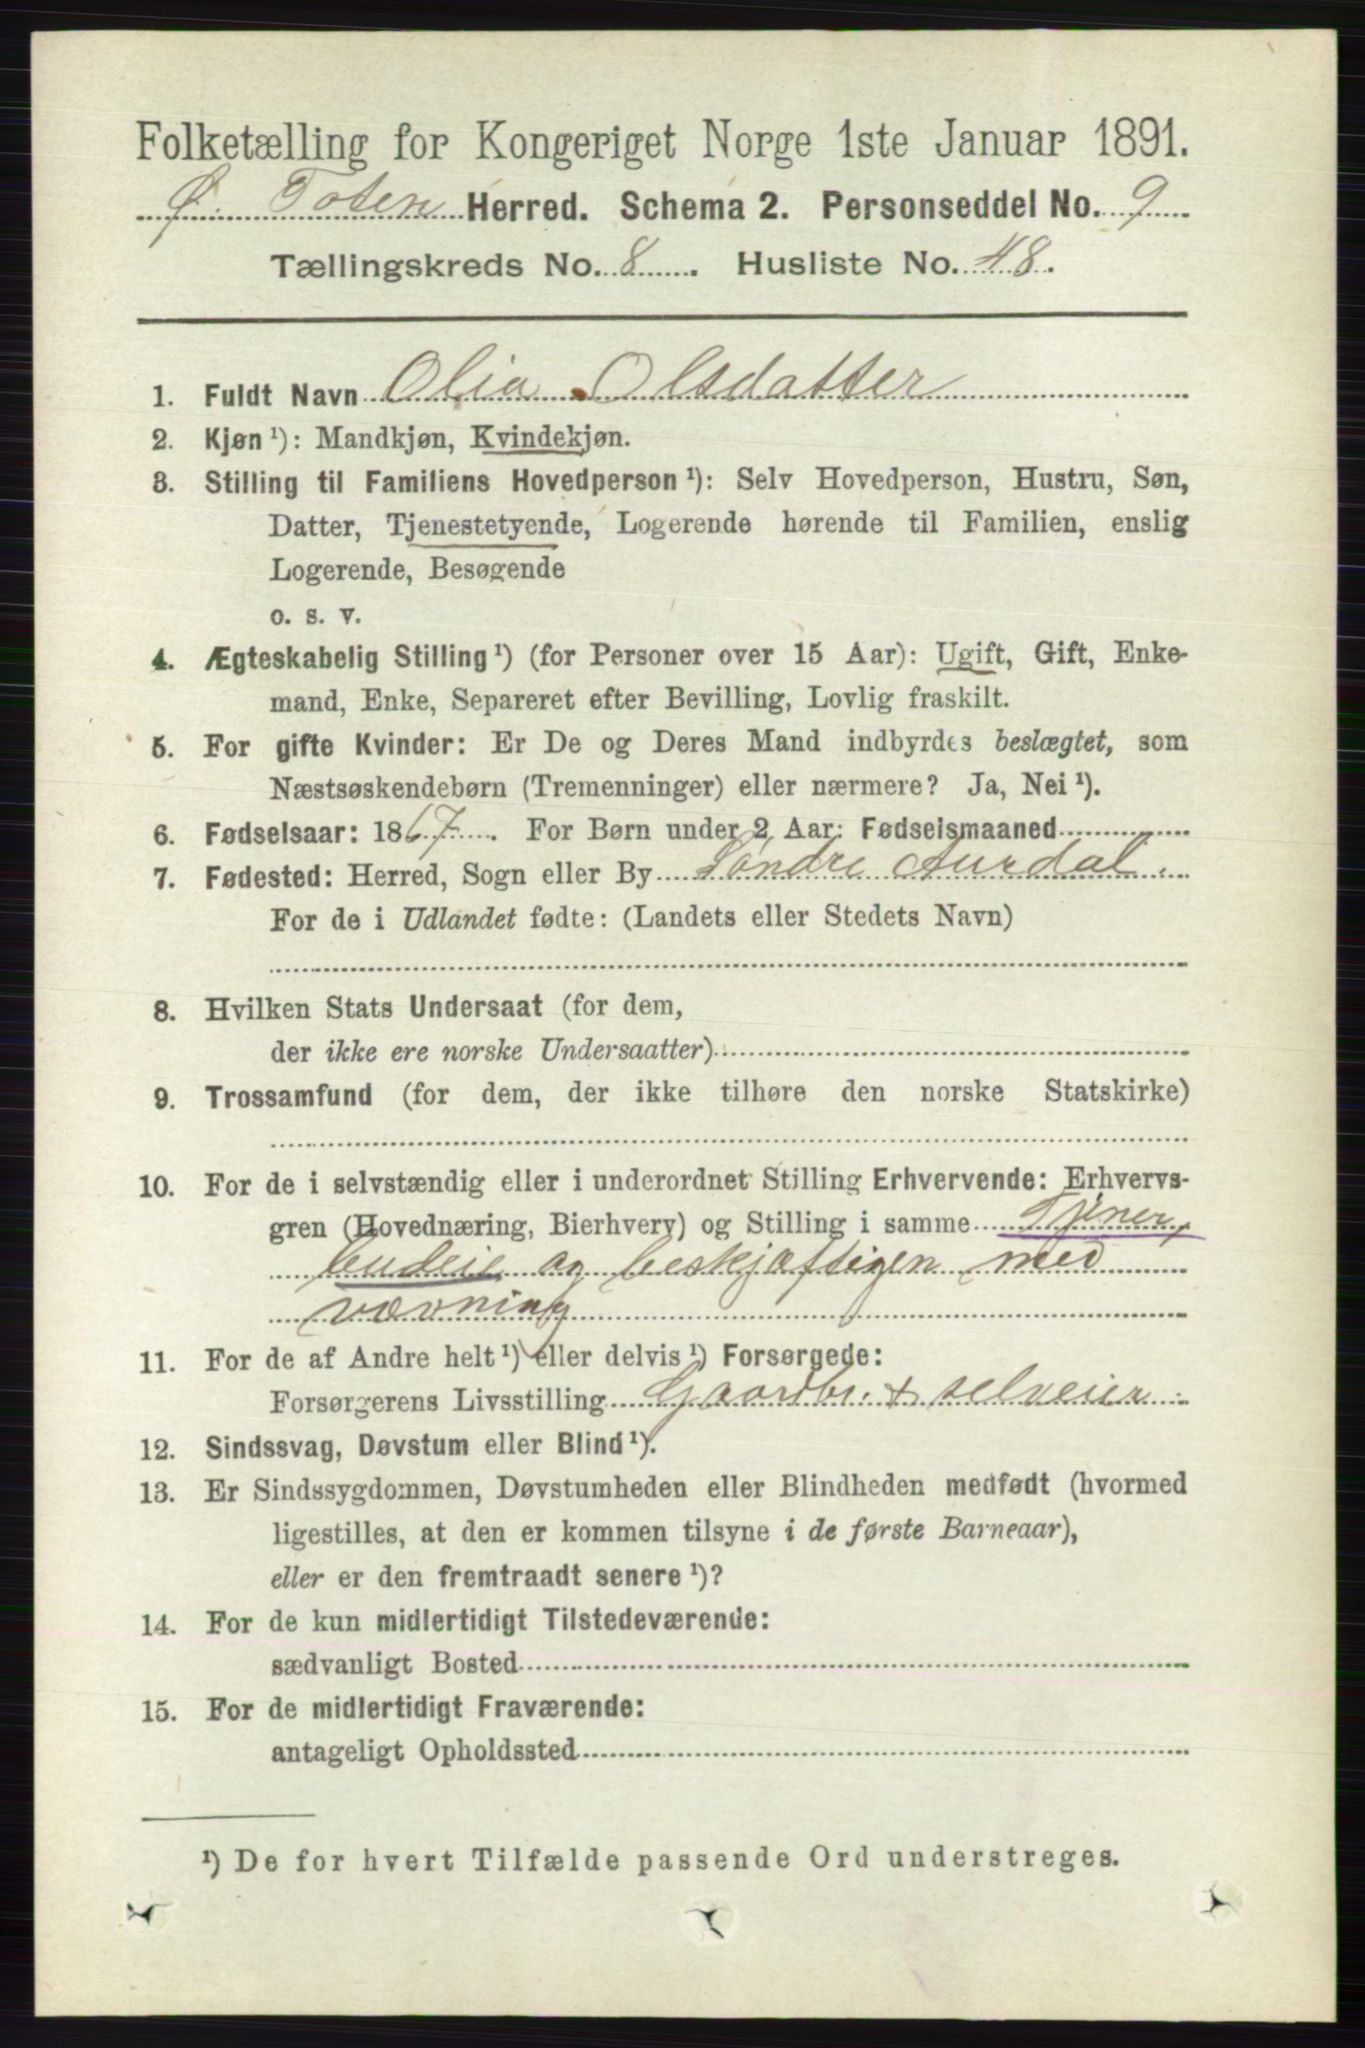 Folketælling for Kongeriget Norge 1ste Januar 1891.
Ø. Toten Herred. Schema 2. Personseddel No. 9
Tællingskreds No. 8. Husliste No. 48.
1. Fuldt Navn Olia Olsdatter
2. Kjøn ¹): Mandkjøn, Kvindekjøn.
3. Stilling til Familiens Hovedperson ¹): Selv Hovedperson, Hustru, Søn,
Datter, Tjenestetyende, Logerende hørende til Familien, enslig
Logerende, Besøgende
o. s. v.
4. Ægteskabelig Stilling ¹) (for Personer over 15 Aar): Ugift, Gift, Enke-
mand, Enke, Separeret efter Bevilling, Lovlig fraskilt.
5. For gifte Kvinder: Er De og Deres Mand indbyrdes beslægtet, som
Næstsøskendebørn (Tremenninger) eller nærmere? Ja, Nei ¹).
6. Fødselsaar: 1867. For Børn under 2 Aar: Fødselsmaaned
7. Fødested: Herred, Sogn eller By Søndre Aurdal.
For de i Udlandet fødte: (Landets eller Stedets Navn)
8. Hvilken Stats Undersaat (for dem,
der ikke ere norske Undersaatter)
9. Trossamfund (for dem, der ikke tilhøre den norske Statskirke)
10. For de i selvstændig eller i underordnet Stilling Erhvervende: Erhvervs-
gren (Hovednæring, Bierhverv) og Stilling i samme Tjener,
budeie og beskjæftigen med
vævning
11. For de af Andre helt ¹) eller delvis ¹) Forsørgede:
Forsørgerens Livsstilling Gaardbr. + selveier.
12. Sindssvag, Døvstum eller Blind ¹).
13. Er Sindssygdommen, Døvstumheden eller Blindheden medfødt (hvormed
ligestilles, at den er kommen tilsyne i de første Barneaar),
eller er den fremtraadt senere ¹)?
14. For de kun midlertidigt Tilstedeværende:
sædvanligt Bosted
15. For de midlertidigt Fraværende:
antageligt Opholdssted
¹) De for hvert Tilfælde passende Ord understreges.